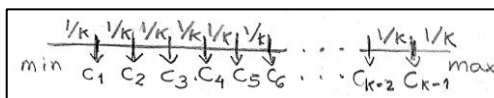 1/K 1/K 1/K 1/K 1/K 1/K 1/K 1/K
min C1 C2 C3 C4 C5 C6 ... CK-2 CK-1 max